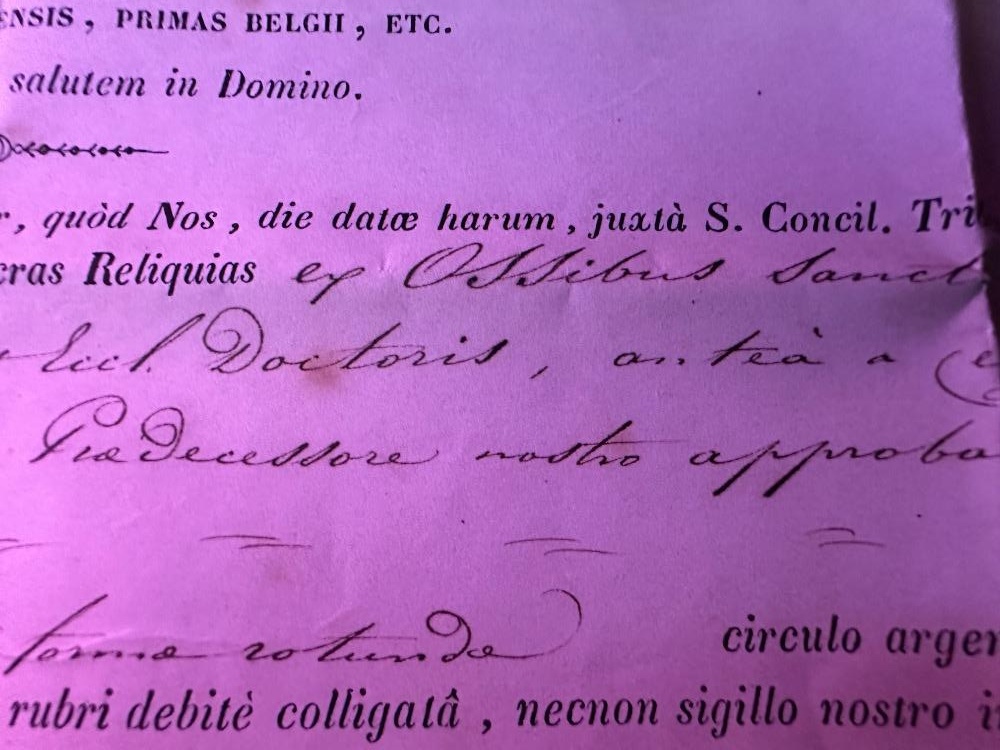 ENSIS, PRIMAS BELGII, ETC.
salutem in Domino.
r, quòd Nos, die datæ harum, juxtà S. Concil. Tri
cras Reliquias ex Ossibus Sanct
Eccl. Doctoris, anteà a
Prædecessore nostro approba
formæ rotundæ circulo argen
rubri debitè colligatâ, necnon sigillo nostro i